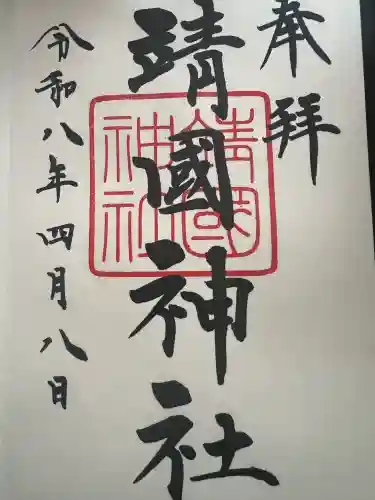 奉拝
靖國神社
靖國
神社
令和八年四月八日